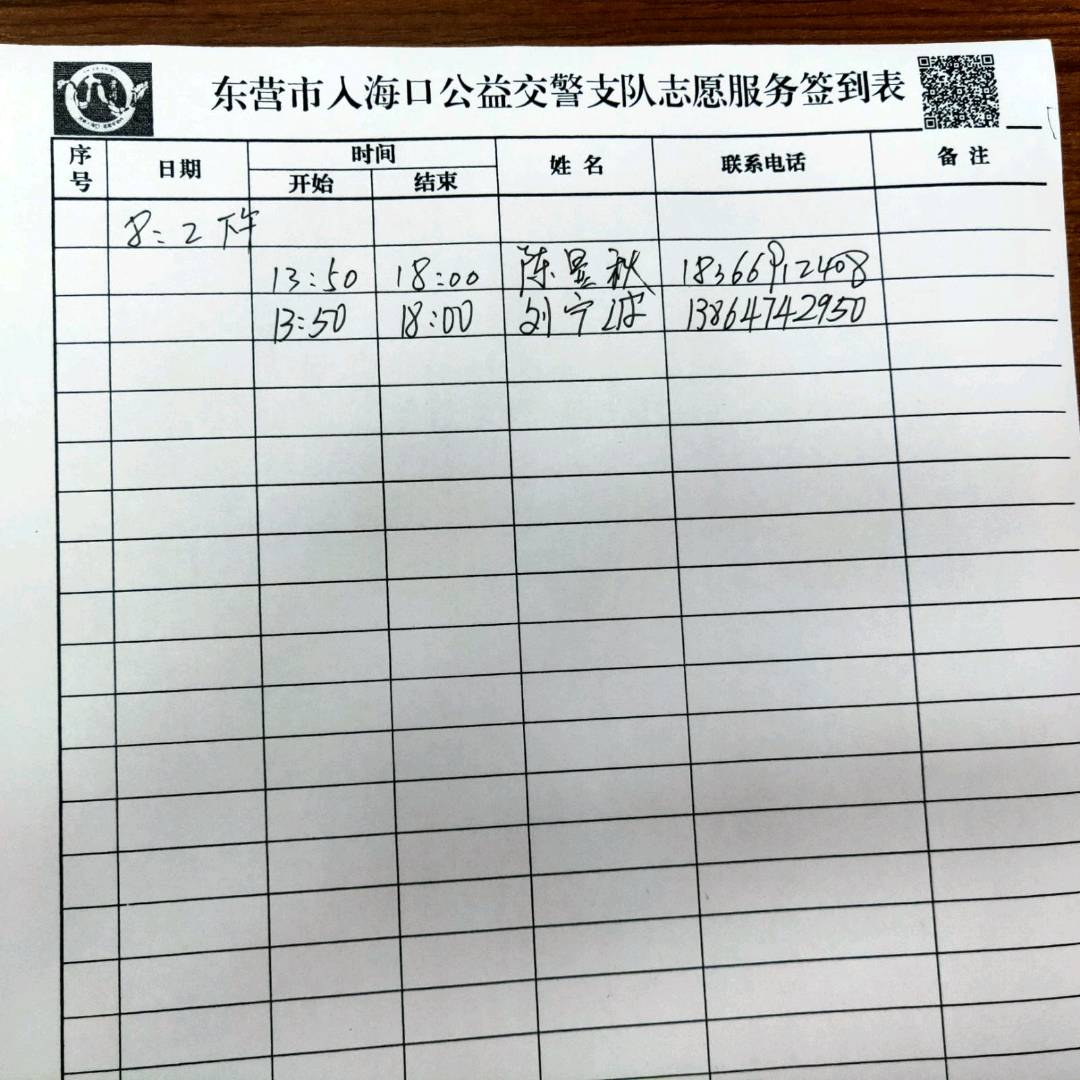 东营市入海口公益交警支队志愿服务签到表
序号 日期 时间 姓名 联系电话 备注
开始 结束
8:2 下午
13:50 18:00 陈昱秋 18366912408
13:50 18:00 刘宁波 13864742950